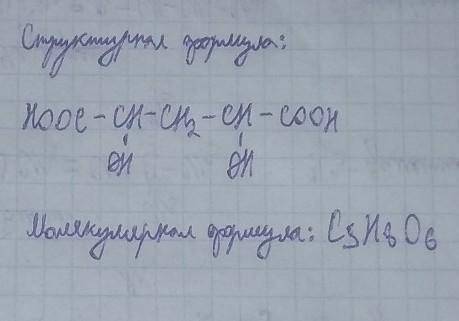 Структурная формула:
HOOC - CH - CH₂ - CH - COOH
OH OH
Молекулярная формула: C₅H₈O₆